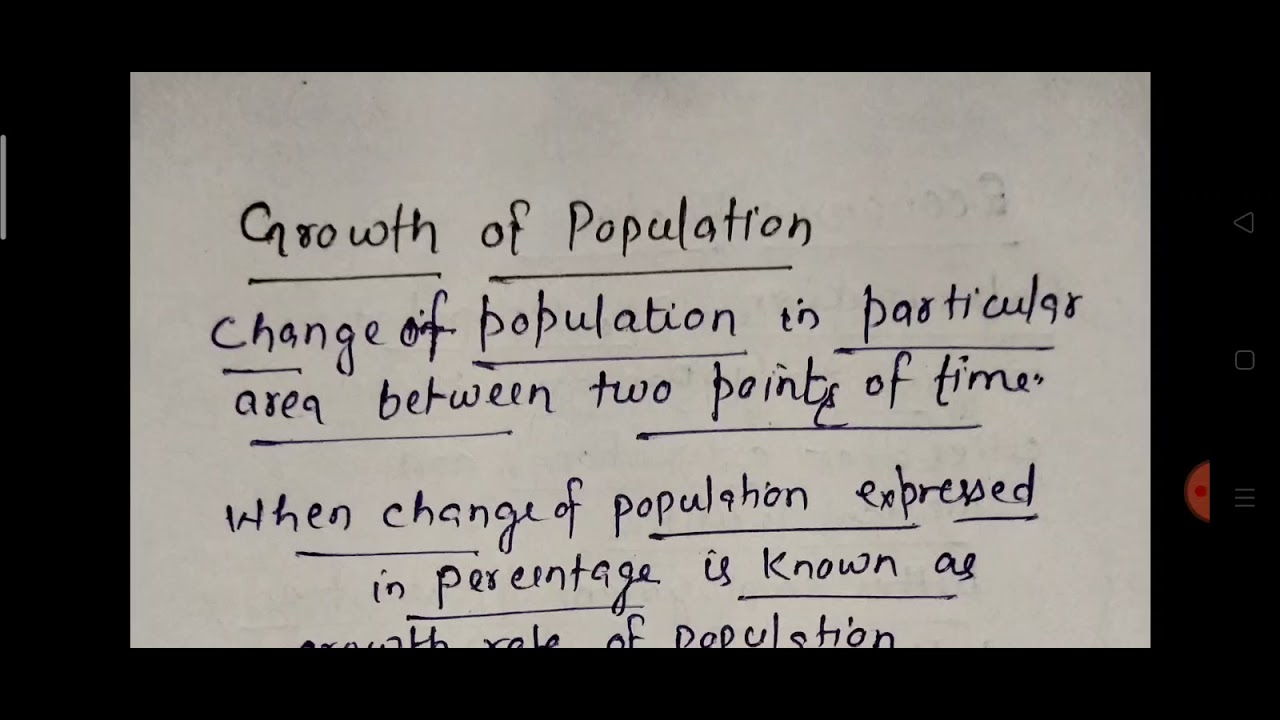 Growth of Population
Change of population in particular
area between two points of time.
When change of population expressed
in percentage is known as
growth rate of population